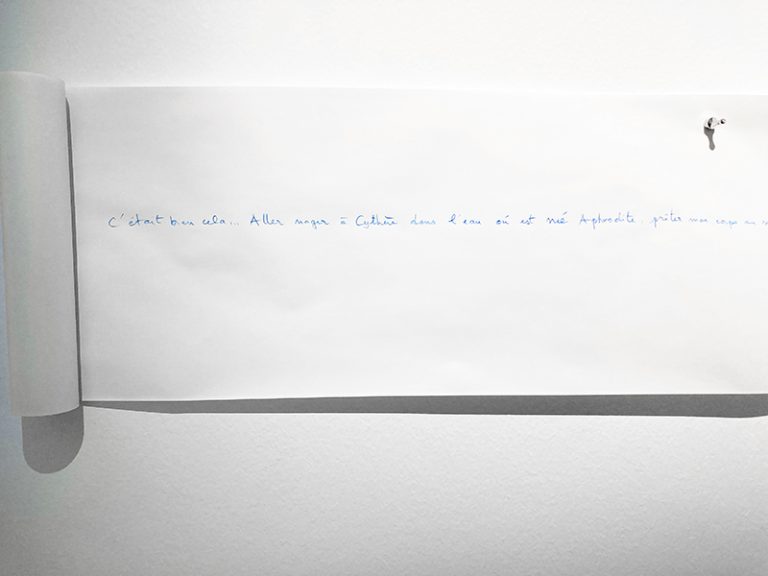 C'était bien cela... Aller nager à Cythère dans l'eau où est né Aphrodite, prêter mon corps au